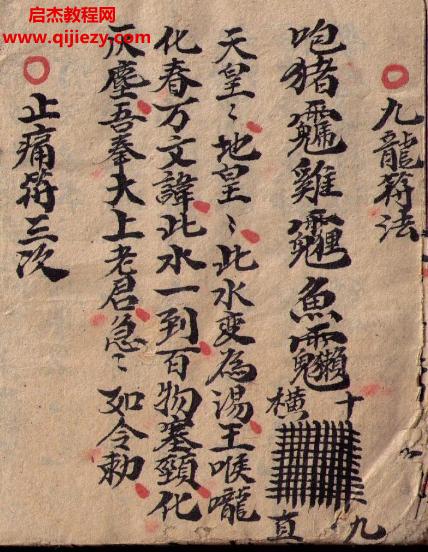 启杰教程网
www.qijiezy.com
九龍符法
咆猪雞魚
十
橫
九
直
天皇〻地皇〻此水変為湯王喉嚨
化春万文諱此水一到百物塞頸化
灰塵吾奉大上老君急〻如令勅
止痛符三次